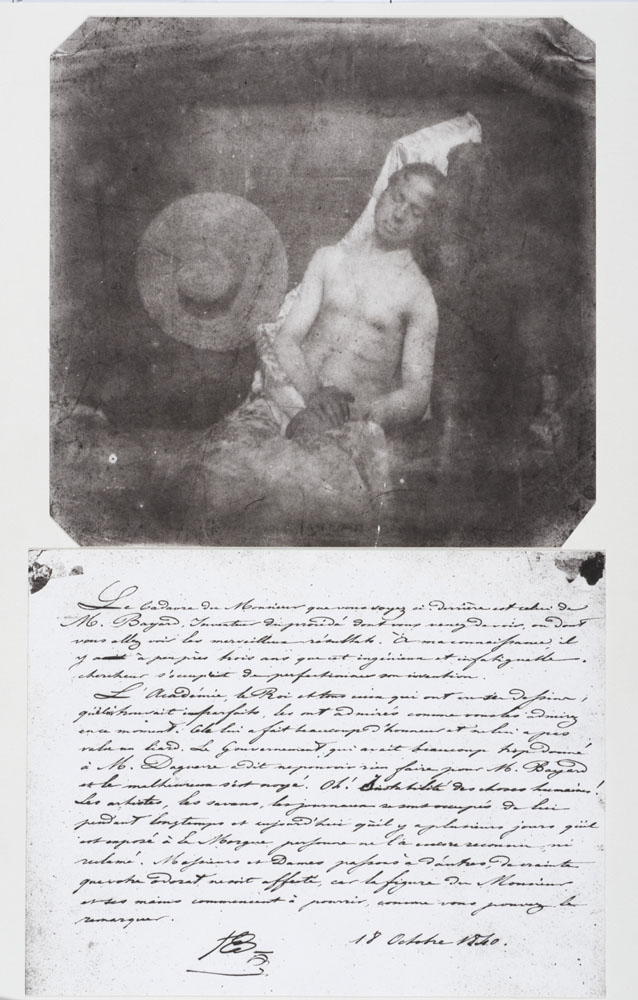 Le Cadavre du Monsieur que vous voyez ci derrière est celui de
M. Bayard, Inventeur du procédé dont vous venez de voir, ou dont
vous allez voir les merveilleux résultats. À ma connaissance, il
y a à peu près trois ans que cet ingénieux et infatiguable
chercheur s'occupait de perfectionner son invention.
L'Académie, le Roi et tous ceux qui ont vu ses dessins,
que lui trouvait imparfaits, les ont admirés comme vous les admirez
en ce moment. Cela lui a fait beaucoup d'honneur et ne lui a pas
valu un liard. Le Gouvernement qui avait beaucoup trop donné
à M. Daguerre a dit ne pouvoir rien faire pour M. Bayard
et le malheureux s'est noyé. Oh! instabilité des choses humaines!
Les artistes, les savans, les journaux se sont occupés de lui
pendant longtemps et aujourd'hui qu'il y a plusieurs jours qu'il
est exposé à la Morgue, personne ne l'a encore reconnu, ni
réclamé. Messieurs et Dames, passons à d'autres, de crainte
que votre odorat ne soit affecté, car la figure du Monsieur
et ses mains commencent à pourrir, comme vous pouvez le
remarquer.
18 Octobre 1840.